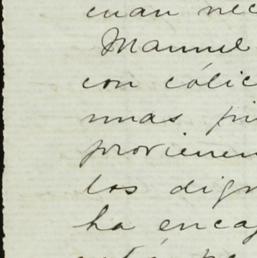 cuan nec
Manuel
con cólic
unas pi
provienen
los dign
ha encap